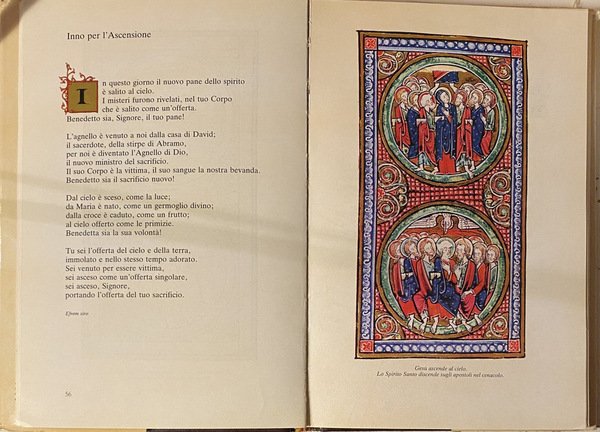 Inno per l'Ascensione
In questo giorno il nuovo pane dello spirito
è salito al cielo.
I misteri furono rivelati, nel tuo Corpo
che è salito come un'offerta.
Benedetto sia, Signore, il tuo pane!
L'agnello è venuto a noi dalla casa di David;
il sacerdote, della stirpe di Abramo,
per noi è diventato l'Agnello di Dio,
il nuovo ministro del sacrificio.
Il suo Corpo è la vittima, il suo sangue la nostra bevanda.
Benedetto sia il sacrificio nuovo!
Dal cielo è sceso, come la luce;
da Maria è nato, come un germoglio divino;
dalla croce è caduto, come un frutto;
al cielo offerto come le primizie.
Benedetta sia la sua volontà!
Tu sei l'offerta del cielo e della terra,
immolato e nello stesso tempo adorato.
Sei venuto per essere vittima,
sei asceso come un'offerta singolare,
sei asceso, Signore,
portando l'offerta del tuo sacrificio.
Efrem siro
56
Gesù ascende al cielo.
Lo Spirito Santo discende sugli apostoli nel cenacolo.